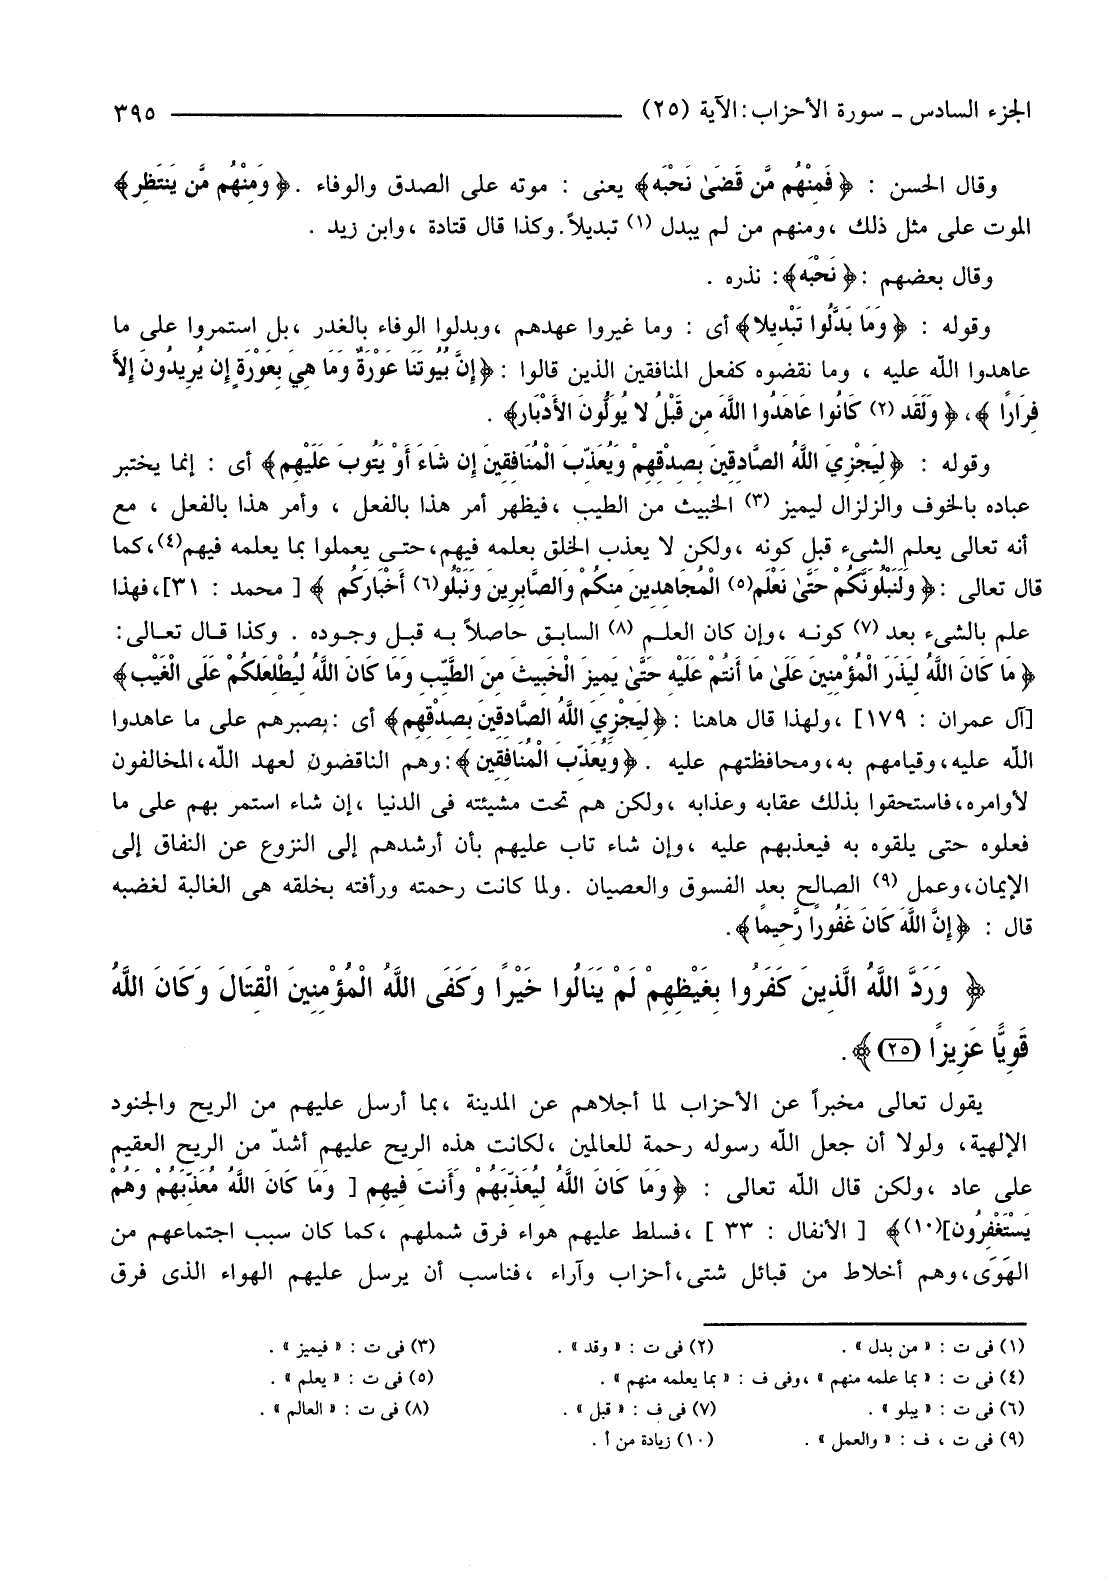 الجزء السادس ـ سورة الأحزاب : الآية (٢٥) ٣٩٥
وقال الحسن : ﴿ فَمِنْهُم مَّن قَضَىٰ نَحْبَه ﴾ يعنى : موته على الصدق والوفاء . ﴿ وَمِنْهُم مَّن يَنتَظِر ﴾
الموت على مثل ذلك ، ومنهم من لم يبدل (١) تبديلاً. وكذا قال قتادة ، وابن زيد .
وقال بعضهم : ﴿ نَحْبَه ﴾ : نذره .
وقوله : ﴿ وَمَا بَدَّلُوا تَبْدِيلا ﴾ أى : وما غيروا عهدهم ، وبدلوا الوفاء بالغدر ، بل استمروا على ما
عاهدوا الله عليه ، وما نقضوه كفعل المنافقين الذين قالوا : ﴿ إِنَّ بُيُوتَنَا عَوْرَةٌ وَمَا هِيَ بِعَوْرَةٍ إِن يُرِيدُونَ إِلاَّ
فِرَارًا ﴾ ، ﴿ وَلَقَد (٢) كَانُوا عَاهَدُوا اللَّهَ مِن قَبْلُ لا يُوَلُّونَ الأَدْبَار ﴾ .
وقوله : ﴿ لِيَجْزِيَ اللَّهُ الصَّادِقِينَ بِصِدْقِهِمْ وَيُعَذِّبَ الْمُنَافِقِينَ إِن شَاءَ أَوْ يَتُوبَ عَلَيْهِم ﴾ أى : إنما يختبر
عباده بالخوف والزلزال ليميز (٣) الخبيث من الطيب ، فيظهر أمر هذا بالفعل ، وأمر هذا بالفعل ، مع
أنه تعالى يعلم الشىء قبل كونه ، ولكن لا يعذب الخلق بعلمه فيهم، حتى يعملوا بما يعلمه فيهم(٤)، كما
قال تعالى : ﴿ وَلَنَبْلُوَنَّكُمْ حَتَّىٰ نَعْلَم (٥) الْمُجَاهِدِينَ مِنكُمْ وَالصَّابِرِينَ وَنَبْلُو (٦) أَخْبَارَكُم ﴾ [ محمد : ٣١]، فهذا
علم بالشىء بعد (٧) كونه ، وإن كان العلم (٨) السابق حاصلاً به قبل وجوده . وكذا قال تعالى :
﴿ مَا كَانَ اللَّهُ لِيَذَرَ الْمُؤْمِنِينَ عَلَىٰ مَا أَنتُمْ عَلَيْهِ حَتَّىٰ يَمِيزَ الْخَبِيثَ مِنَ الطَّيِّبِ وَمَا كَانَ اللَّهُ لِيُطْلِعَكُمْ عَلَى الْغَيْب ﴾
[آل عمران : ١٧٩] ، ولهذا قال هاهنا : ﴿ لِيَجْزِيَ اللَّهُ الصَّادِقِينَ بِصِدْقِهِم ﴾ أى : بصبرهم على ما عاهدوا
الله عليه، وقيامهم به، ومحافظتهم عليه . ﴿ وَيُعَذِّبَ الْمُنَافِقِين ﴾ : وهم الناقضون لعهد الله، المخالفون
لأوامره، فاستحقوا بذلك عقابه وعذابه ، ولكن هم تحت مشيئته فى الدنيا ، إن شاء استمر بهم على ما
فعلوه حتى يلقوه به فيعذبهم عليه ، وإن شاء تاب عليهم بأن أرشدهم إلى النزوع عن النفاق إلى
الإيمان، وعمل (٩) الصالح بعد الفسوق والعصيان . ولما كانت رحمته ورأفته بخلقه هى الغالبة لغضبه
قال : ﴿ إِنَّ اللَّهَ كَانَ غَفُوراً رَّحِيماً ﴾.
﴿ وَرَدَّ اللَّهُ الَّذِينَ كَفَرُوا بِغَيْظِهِمْ لَمْ يَنَالُوا خَيْرًا وَكَفَى اللَّهُ الْمُؤْمِنِينَ الْقِتَالَ وَكَانَ اللَّهُ
قَوِيًّا عَزِيزًا (٢٥) ﴾ .
يقول تعالى مخبراً عن الأحزاب لما أجلاهم عن المدينة ، بما أرسل عليهم من الريح والجنود
الإلهية، ولولا أن جعل الله رسوله رحمة للعالمين ، لكانت هذه الريح عليهم أشدّ من الريح العقيم
على عاد ، ولكن قال الله تعالى : ﴿ وَمَا كَانَ اللَّهُ لِيُعَذِّبَهُمْ وَأَنتَ فِيهِم [ وَمَا كَانَ اللَّهُ مُعَذِّبَهُمْ وَهُمْ
يَسْتَغْفِرُون](١٠) ﴾ [ الأنفال : ٣٣ ] ، فسلط عليهم هواء فرق شملهم ، كما كان سبب اجتماعهم من
الهَوَى، وهم أخلاط من قبائل شتى، أحزاب وآراء ، فناسب أن يرسل عليهم الهواء الذى فرق
(١) فى ت : « من بدل » . (٢) فى ت : « وقد » . (٣) فى ت : « فيميز » .
(٤) فى ت : « بما علمه منهم » ، وفى ف : « بما يعلمه منهم » . (٥) فى ت : « يعلم » .
(٦) فى ت : « يبلو » . (٧) فى ف : « قبل » . (٨) فى ت : « العالم » .
(٩) فى ت ، ف : « والعمل » . (١٠) زيادة من أ .